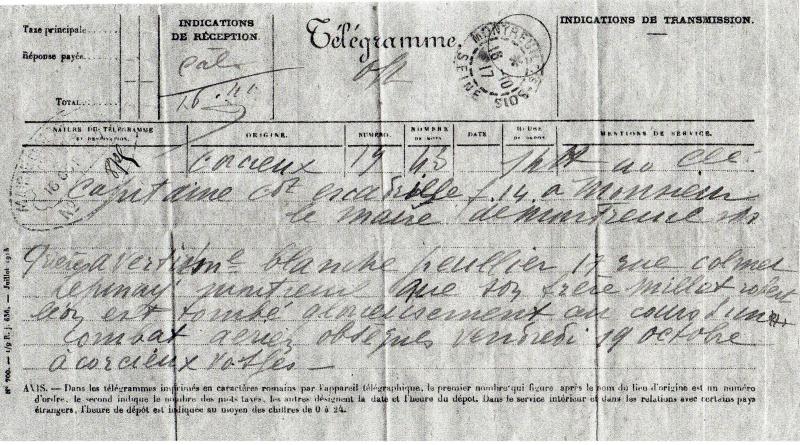 Taxe principale
Réponse payée
TOTAL
INDICATIONS
DE RÉCEPTION.
Télégramme.
INDICATIONS DE TRANSMISSION.
MONTREUIL-S-BOIS
SEINE
16-10
17
16
NATURE DU TÉLÉGRAMME
ET DESTINATION.
ORIGINE.
NUMÉRO.
NOMBRE
DE MOTS.
DATE
HEURE
DE DÉPÔT.
MENTIONS DE SERVICE.
corcieux 19 43
Capitaine cdt escadrille f 14 a Monsieur
le maire de montreuil
Prière avertir Mme blanche peullier 17 rue colmet
lepinay montreuil que son frère millot robert
léon est tombé glorieusement au cours d'un
combat aérien obsèques vendredi 19 octobre
à corcieux vosges —
N° 700. — Juillet 1913
AVIS. — Dans les télégrammes imprimés en caractères romains par l'appareil télégraphique, le premier nombre qui figure après le nom du lieu d'origine est un numéro
d'ordre, le second indique le nombre des mots taxés, les autres désignent la date et l'heure du dépôt. Dans le service intérieur et dans les relations avec certains pays
étrangers, l'heure de dépôt est indiquée au moyen des chiffres de 0 à 24.